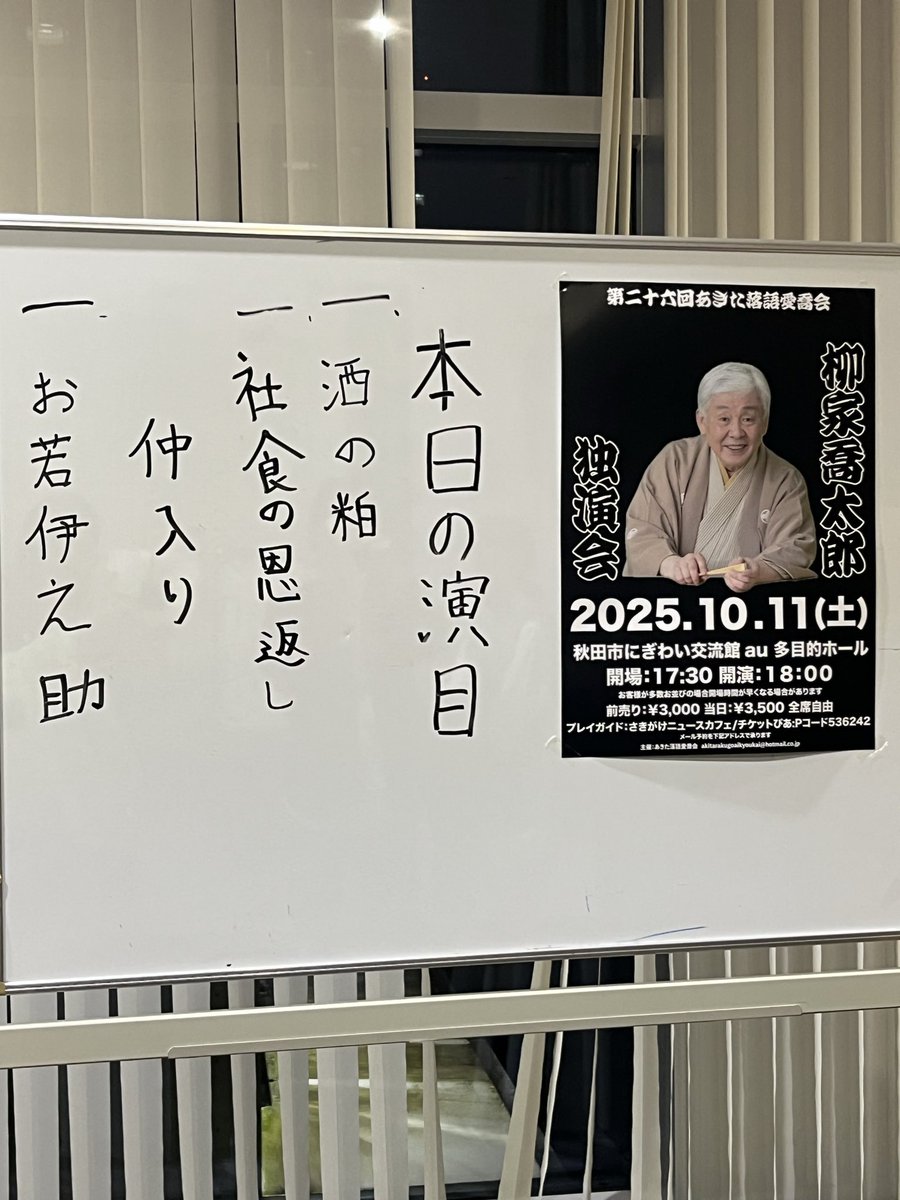 本日の演目
一、酒の粕
一、社食の恩返し
仲入り
一、お若伊之助
第二十六回あきた落語愛喬会
柳家喬太郎
独演会
2025.10.11(土)
秋田市にぎわい交流館 au 多目的ホール
開場:17:30 開演:18:00
お客様が多数お並びの場合開場時間が早くなる場合があります
前売り:¥3,000 当日:¥3,500 全席自由
プレイガイド:さきがけニュースカフェ/チケットぴあ:Pコード536242
メール予約を下記アドレスで承ります
主催:あきた落語愛喬会 akitarakugoaikyoukai@hotmail.co.jp